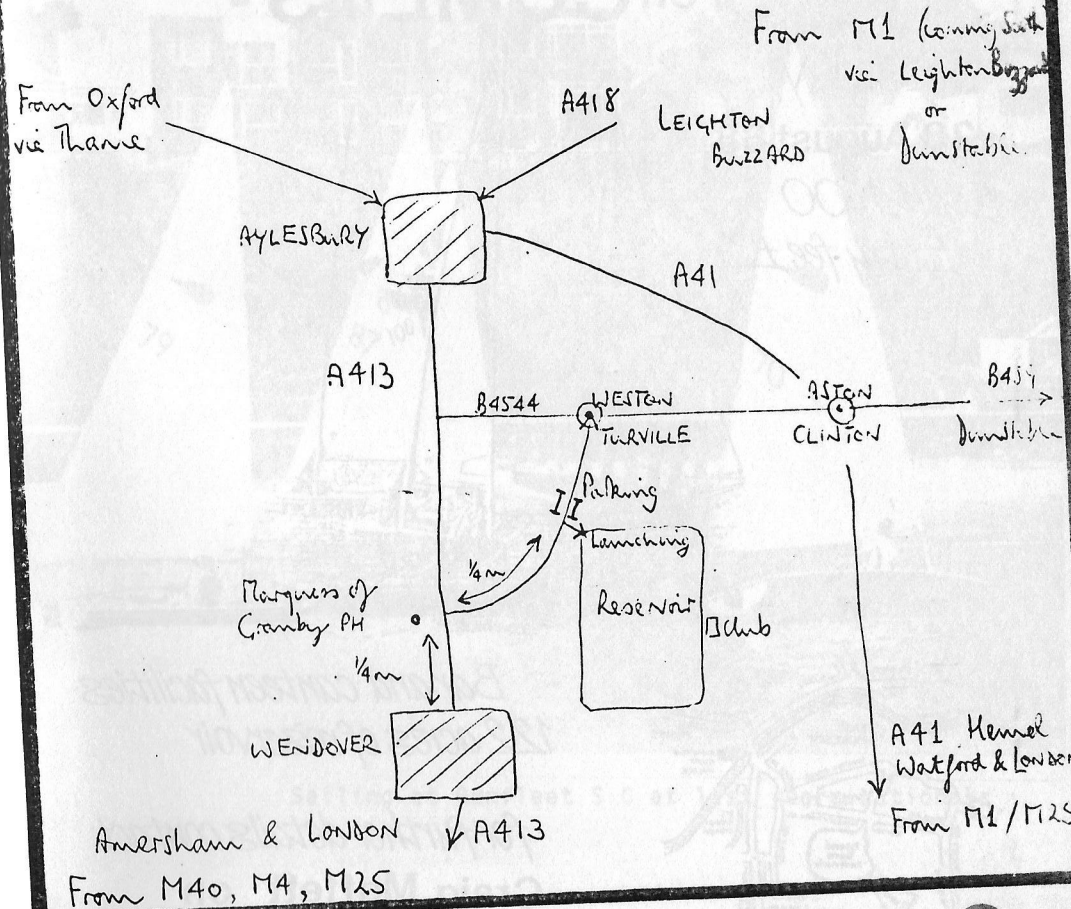 From M1 (coming South
via Leighton Buzzard
or
Dunstable
From Oxford
via Thame
A418
LEIGHTON
BUZZARD
AYLESBURY
A41
A413
B4544
WESTON
TURVILLE
ASTON
CLINTON
B454
Dunstable
Parking
Launching
1/4 m
Reservoir
Club
Marquess of
Granby PH
1/4 m
WENDOVER
A41 Hemel
Watford & LONDON
From M1/M25
Amersham & LONDON
A413
From M40, M4, M25